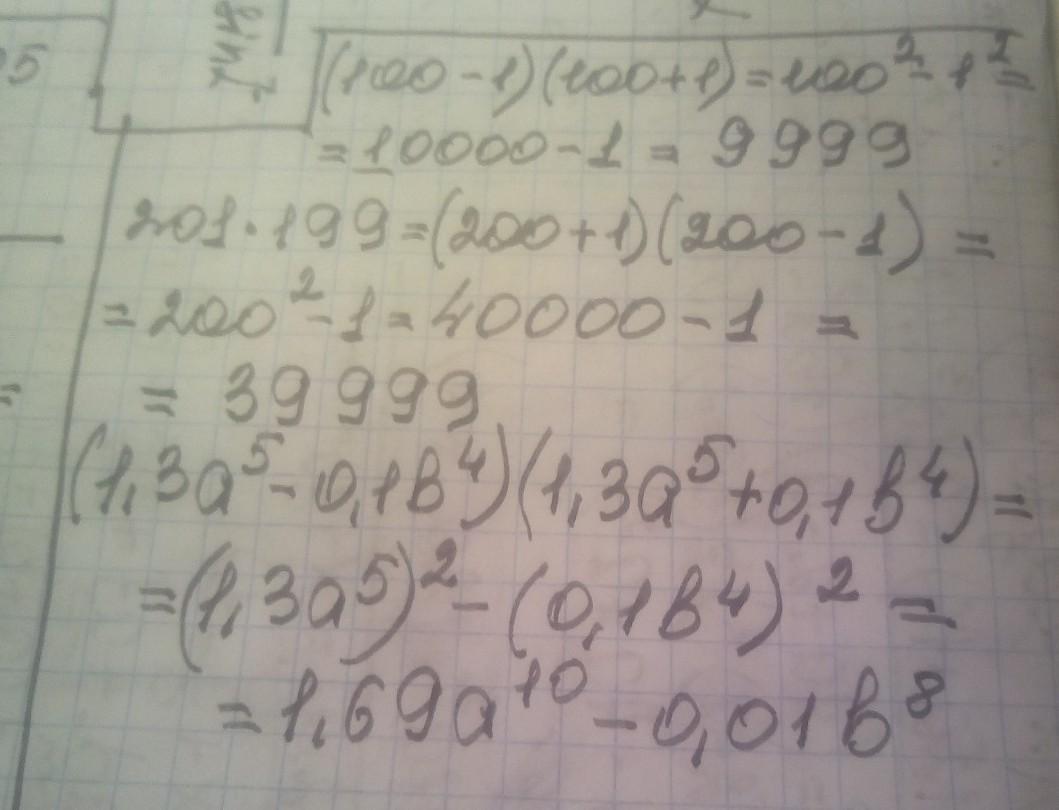 5
(100-1)(100+1)=100²-1²=
=10000-1=9999
201·199=(200+1)(200-1)=
=200²-1=40000-1=
=39999
(1,3a⁵-0,1b⁴)(1,3a⁵+0,1b⁴)=
=(1,3a⁵)²-(0,1b⁴)²=
=1,69a¹⁰-0,01b⁸